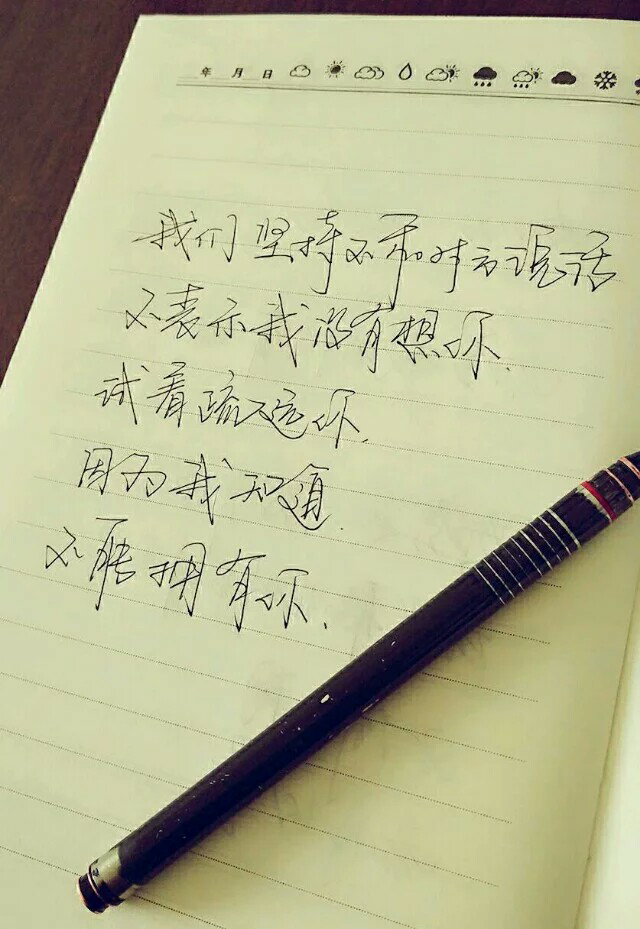 年 月 日
我们坚持不和对方说话
不表示我没有想你.
试着疏远你.
因为我知道.
不能拥有你.